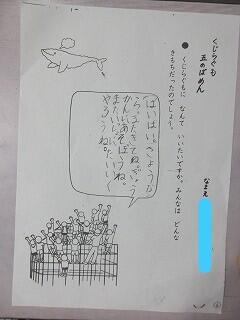 くじらぐも
五のばめん
なまえ
●くじらぐもに なんて いいたいですか。みんなは どんな
きもちだったのでしょう。
ばいばい。きょうか
らまたきてね。
かんにあそぼうね。
またいっしょにたいいく
やろうね。